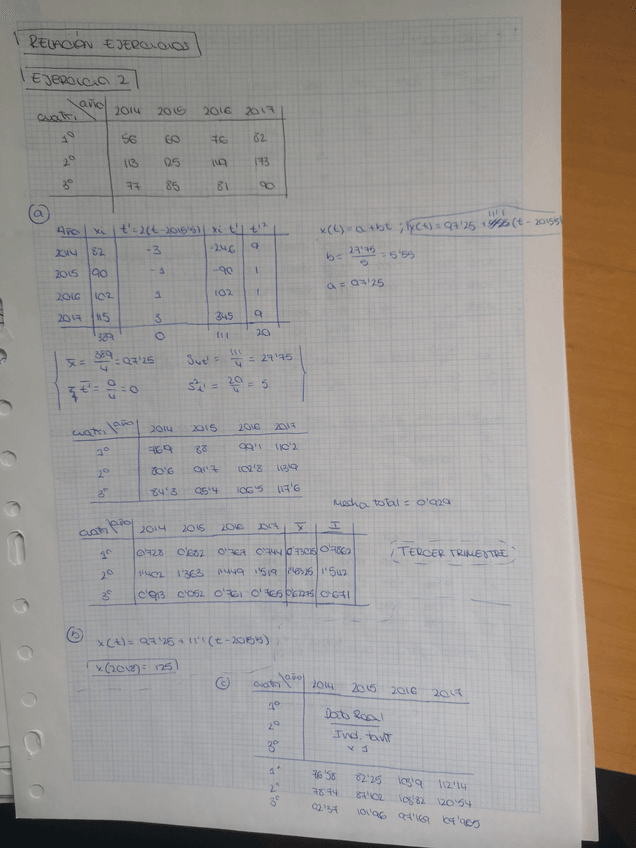 RELACIÓN EJERCICIOS
EJERCICIO 2
cuatri \ año 2014 2015 2016 2017
1º 56 60 76 82
2º 113 125 149 173
3º 77 85 81 90
(a)
Año xi t'=2(t-2015'5) xi t' t'²
2014 82 -3 -246 9
2015 90 -1 -90 1
2016 102 1 102 1
2017 115 3 345 9
389 0 111 20
x(t)=a+bt ; x(t)=97'25 + 11'1 (t-2015'5)
b = 27'75/5 = 5'55
a = 97'25
x̄ = 389/4 = 97'25 Sxt' = 111/4 = 27'75
t̄' = 0/4 = 0 S²t' = 20/4 = 5
cuatri \ año 2014 2015 2016 2017
1º 76'9 88 99'1 110'2
2º 80'6 91'7 102'8 113'9
3º 84'3 95'4 106'5 117'6
Media total = 0'929
cuatri \ año 2014 2015 2016 2017 x̄ I
1º 0'728 0'682 0'767 0'744 0'73025 0'7862
2º 1'402 1'363 1'449 1'519 1'43325 1'542
3º 0'913 0'761 0'765 0'671
TERCER TRIMESTRE
(b) x(t) = 97'25 + 11'1 (t-2015'5)
x(2018) = 125
(c) cuatri \ año 2014 2015 2016 2017
1º
2º
3º
Dato Real
Ind.
x 1
1º 76'58 82'25 103'9 112'14
2º 78'74 87'102 103'82 120'54
3º 92'37 101'96 97'169 107'965